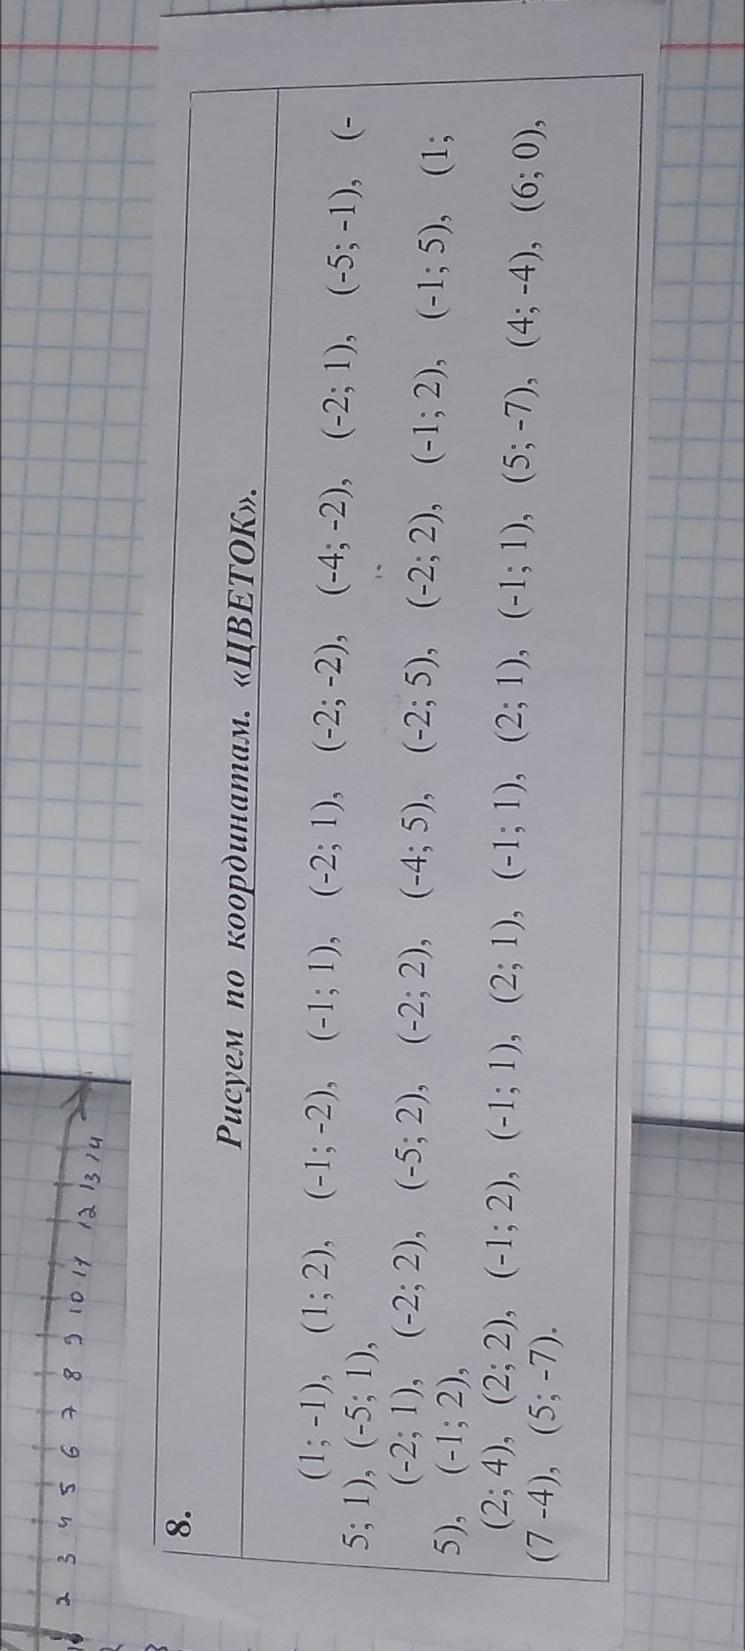 8.
Рисуем по координатам. «ЦВЕТОК».
(1; -1), (1; 2), (-1; -2), (-1; 1), (-2; 1), (-2; -2), (-4; -2), (-2; 1), (-5; -1), (-
5; 1), (-5; 1),
(-2; 1), (-2; 2), (-5; 2), (-2; 2), (-4; 5), (-2; 5), (-2; 2), (-1; 2), (-1; 5), (1;
5), (-1; 2),
(2; 4), (2; 2), (-1; 2), (-1; 1), (2; 1), (-1; 1), (2; 1), (-1; 1), (5; -7), (4; -4), (6; 0),
(7 -4), (5; -7).
2 3 4 5 6 7 8 9 10 11 12 13 14